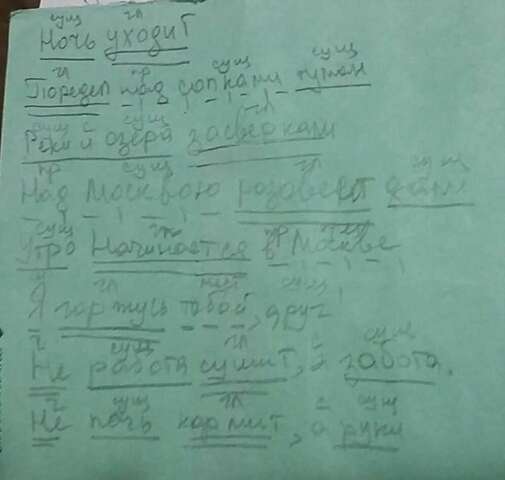 сущ гл
Ночь уходит
гл пр сущ сущ
Поредел над сопками туман
сущ с сущ гл
Реки и озёра засверкали
пр сущ гл сущ
Над Москвою розовеет даль
сущ гл пр сущ
Утро начинается в Москве
гл мест сущ
Я горжусь тобой, друг!
ч сущ гл с сущ
Не работа сушит, а забота.
ч сущ гл с сущ
Не печь кормит, а руки